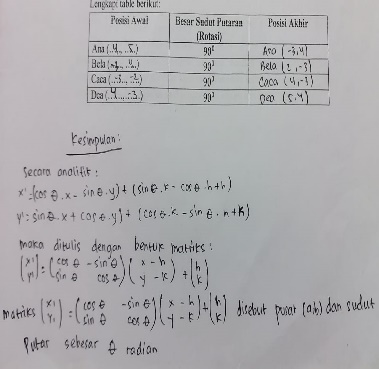 Lengkapi table berikut:
Posisi Awal | Besar Sudut Putaran (Rotasi) | Posisi Akhir
Ana (..4.., ..5..) | 90⁰ | Ana (-3,4)
Bela (..., ..4..) | 90⁰ | Bela (2,-3)
Caca (..-3.., ..-2..) | 90⁰ | Caca (4,-3)
Dea (..4.., ..-3..) | 90⁰ | Dea (5,4)
Kesimpulan:
Secara analitit:
x' = (cos θ . x - sin θ . y) + (sin θ . k - cos θ . h + h)
y' = sin θ . x + cos θ . y) + (cos θ . k - sin θ . h + k)
maka ditulis dengan bentuk matriks:
(x' y') = (cos θ -sin θ sin θ cos θ) (x - h y - k) + (h k)
matriks (x' y') = (cos θ -sin θ sin θ cos θ) (x - h y - k) + (h k) disebut pusat (a,b) dan sudut
Putar sebesar θ radian